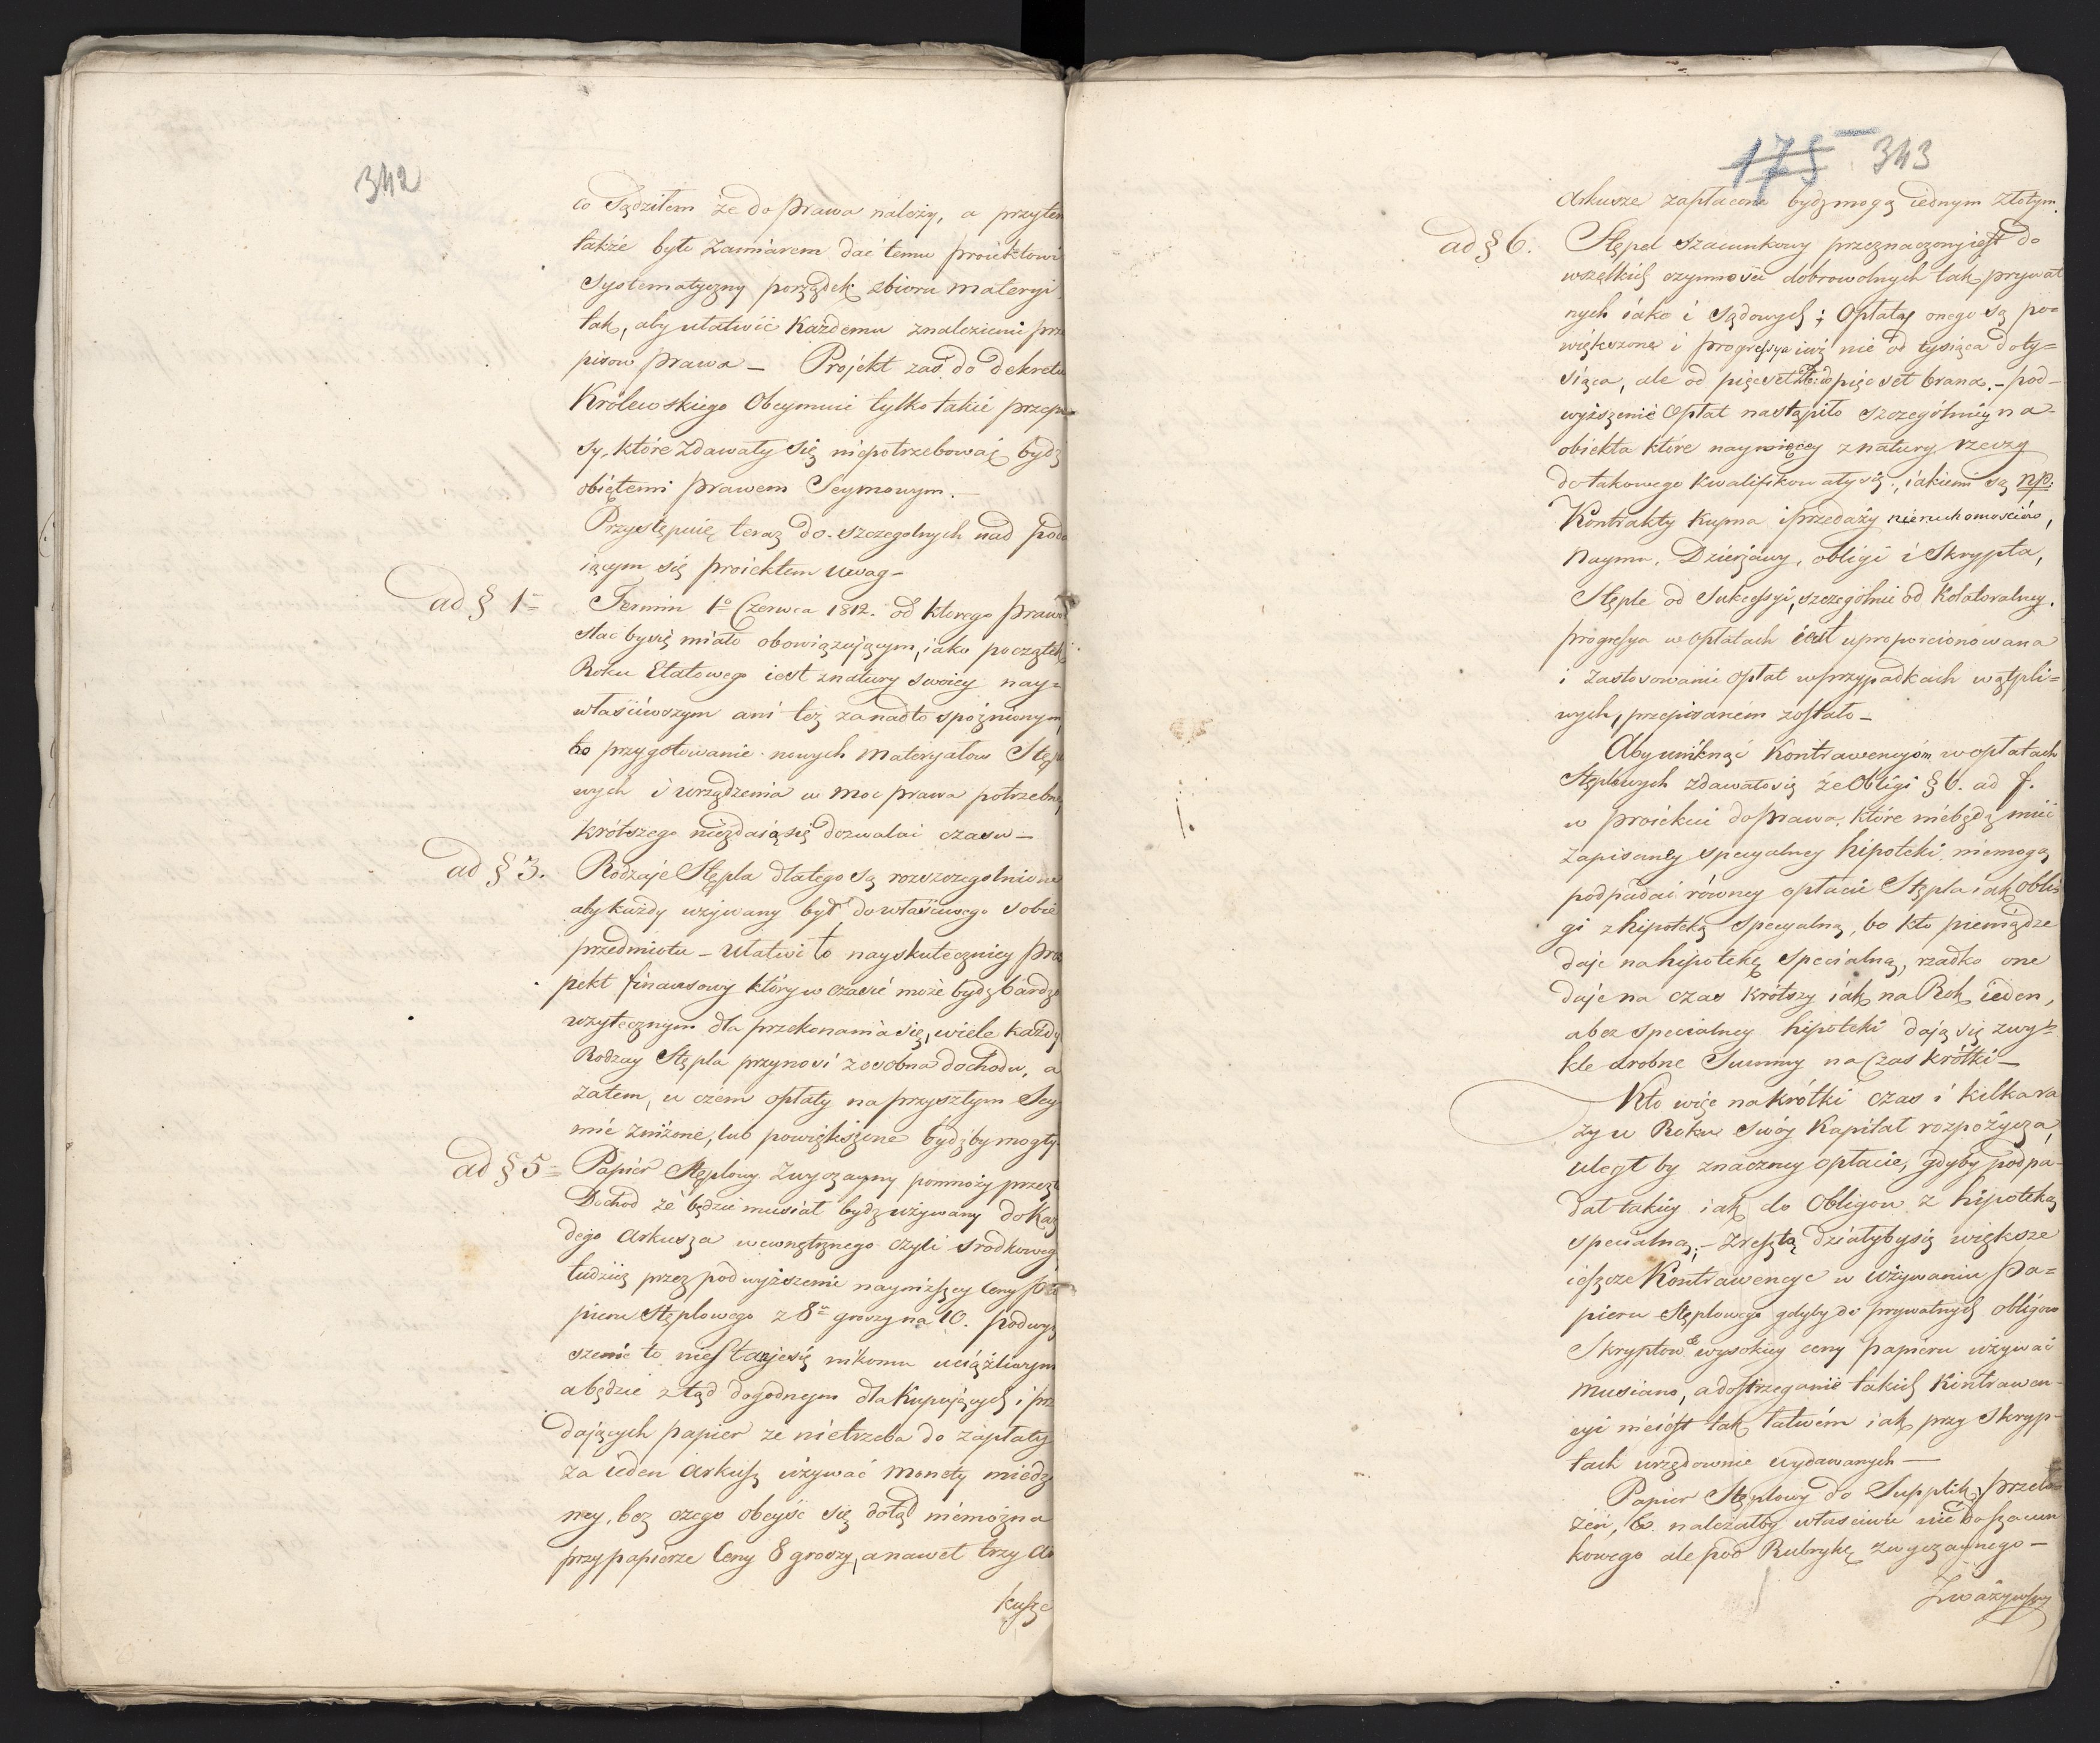 342
co sądziłem że do prawa należy, a przytem
także było zamiarem dać temu proiektowi
systematyczny porządek zbioru materyi
tak, aby ułatwić każdemu znalezienie prze
pisow prawa — Projekt zaś do dekretu
Królewskiego obeymuie tylko takie przepi
sy, które zdawały się niepotrzebować bydź
obiętemi prawem Seymowym. —
Przystępuię teraz do szczegolnych nad poda
iącym się proiektem uwag —
ad § 1=
Termin 1o Czerwca 1812. od ktorego prawo
stac by się miało obowiązującym, iako początek
Roku Etatowego iest z natury swoiey nay=
właściwszym ani też zanadto spoźnionym,
bo przygotowanie nowych materyałow Stęplo
wych i urządzenia w moc prawa potrzebne
krótszego niezdaią się dozwalać czasu —
ad § 3.
Rodzaje Stępla dlatego są rozszczegolnione
aby każdy używany był do właściwego sobie
przedmiotu — Ułatwi to nayskuteczniey pros
pekt finansowy który w czasie może bydź bardzo
użytecznym dla przekonania się, wiele każdy
Rodzay Stępla przynosi z osobna dochodu, a
zatem, w czem opłaty na przyszłym Sey
mie zniżone, lub powiększone bydź by mogły.
ad § 5=
Papier Stęplowy Zwyczayny pomnoży przez to
Dochod że będzie musiał bydź używany do Każ
dego Arkusza wewnętrznego czyli srodkowego
tudzież przez podwyższenie nayniższey Ceny pa
pieru Stęplowego z 8u groszy na 10. podwyż
szenie to nie stanie się nikomu uciążliwym
a będzie ztąd dogodnym dla Kupujących i prze
dających papier że nietrzeba do zapłaty
za ieden Arkusz używać monety miedzia
ney, bez czego obeyść się dotąd niemożna
przy papierze Ceny 8 groszy, a nawet trzy Ar
kusze
175 343
Arkusze zapłacone bydź mogą iednym złotym.
ad § 6.
Stępel szacunkowy przeznaczony iest do
wszelkich czynności dobrowolnych tak prywat
nych iako i sądowych; Opłaty onego są po=
większone i progressya iuż nie od tysiąca do ty=
siąca, ale od pięciuset do pięciuset brana. — pod=
wyższenie Opłat nastąpiło szczególniey na
obiekta które naywięcey z natury rzeczy
do takowego kwalifikowały się; iakiemi są np:
Kontrakty Kupna i przedaży nieruchomościów,
Naymu, Dzierżawy, obligi i Skrypta,
Stęple od Sukcessyi, szczególnie od Kolateralney.
progresya w opłatach iest uproporcionowana
i zastosowanie opłat w przypadkach wątpli=
wych, przepisanem zostało —
Aby uniknąć Kontrawencyom w opłatach
Stęplowych zdawało się że Obligi § 6. ad f.
w proiekcie do prawa, które niebędą mieć
zapisaney specyalney hipoteki niemogą
podpadać równey opłacie Stępla iak obli
gi z hipoteką specyalną, bo kto pieniądze
daje na hipotekę specialną, rzadko one
daje na czas krótszy iak na Rok ieden,
a bez specialney hipoteki dają się zwy=
kle drobne Summy na Czas krótki —
Kto więc na krótki czas i kilka ra
zy w Roku swóy Kapitał rozpożycza,
uległ by znaczney opłacie, gdyby podpa=
dał takiey iak do Obligow z hipoteką
specialną; — zresztą działyby się większe
ieszcze Kontrawencye w używaniu Pa=
pieru Stęplowego gdyby do prywatnych obligow
Skryptow &c wysokiey ceny papieru używać
musiano, a dostrzeganie takich Kontrawen=
cyi nieiest tak łatwém iak przy Skryp=
tach urzędownie wydawanych —
Papier Stęplowy do Supplik, przeło
żeń, &c. należałby właściwie nie do szacun
kowego ale pod Rubrykę zwyczaynego —
Zważywszy